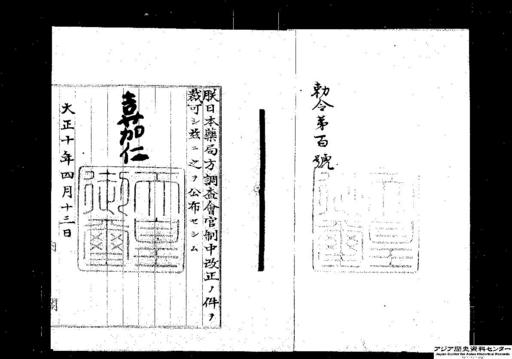 勅令第百號
朕日本藥局方調査會官制中改正ノ件ヲ
裁可シ茲ニ之ヲ公布セシム
嘉仁
天皇
御璽
大正十年四月十三日
内閣
アジア歴史資料センター
Japan Center for Asian Historical Records